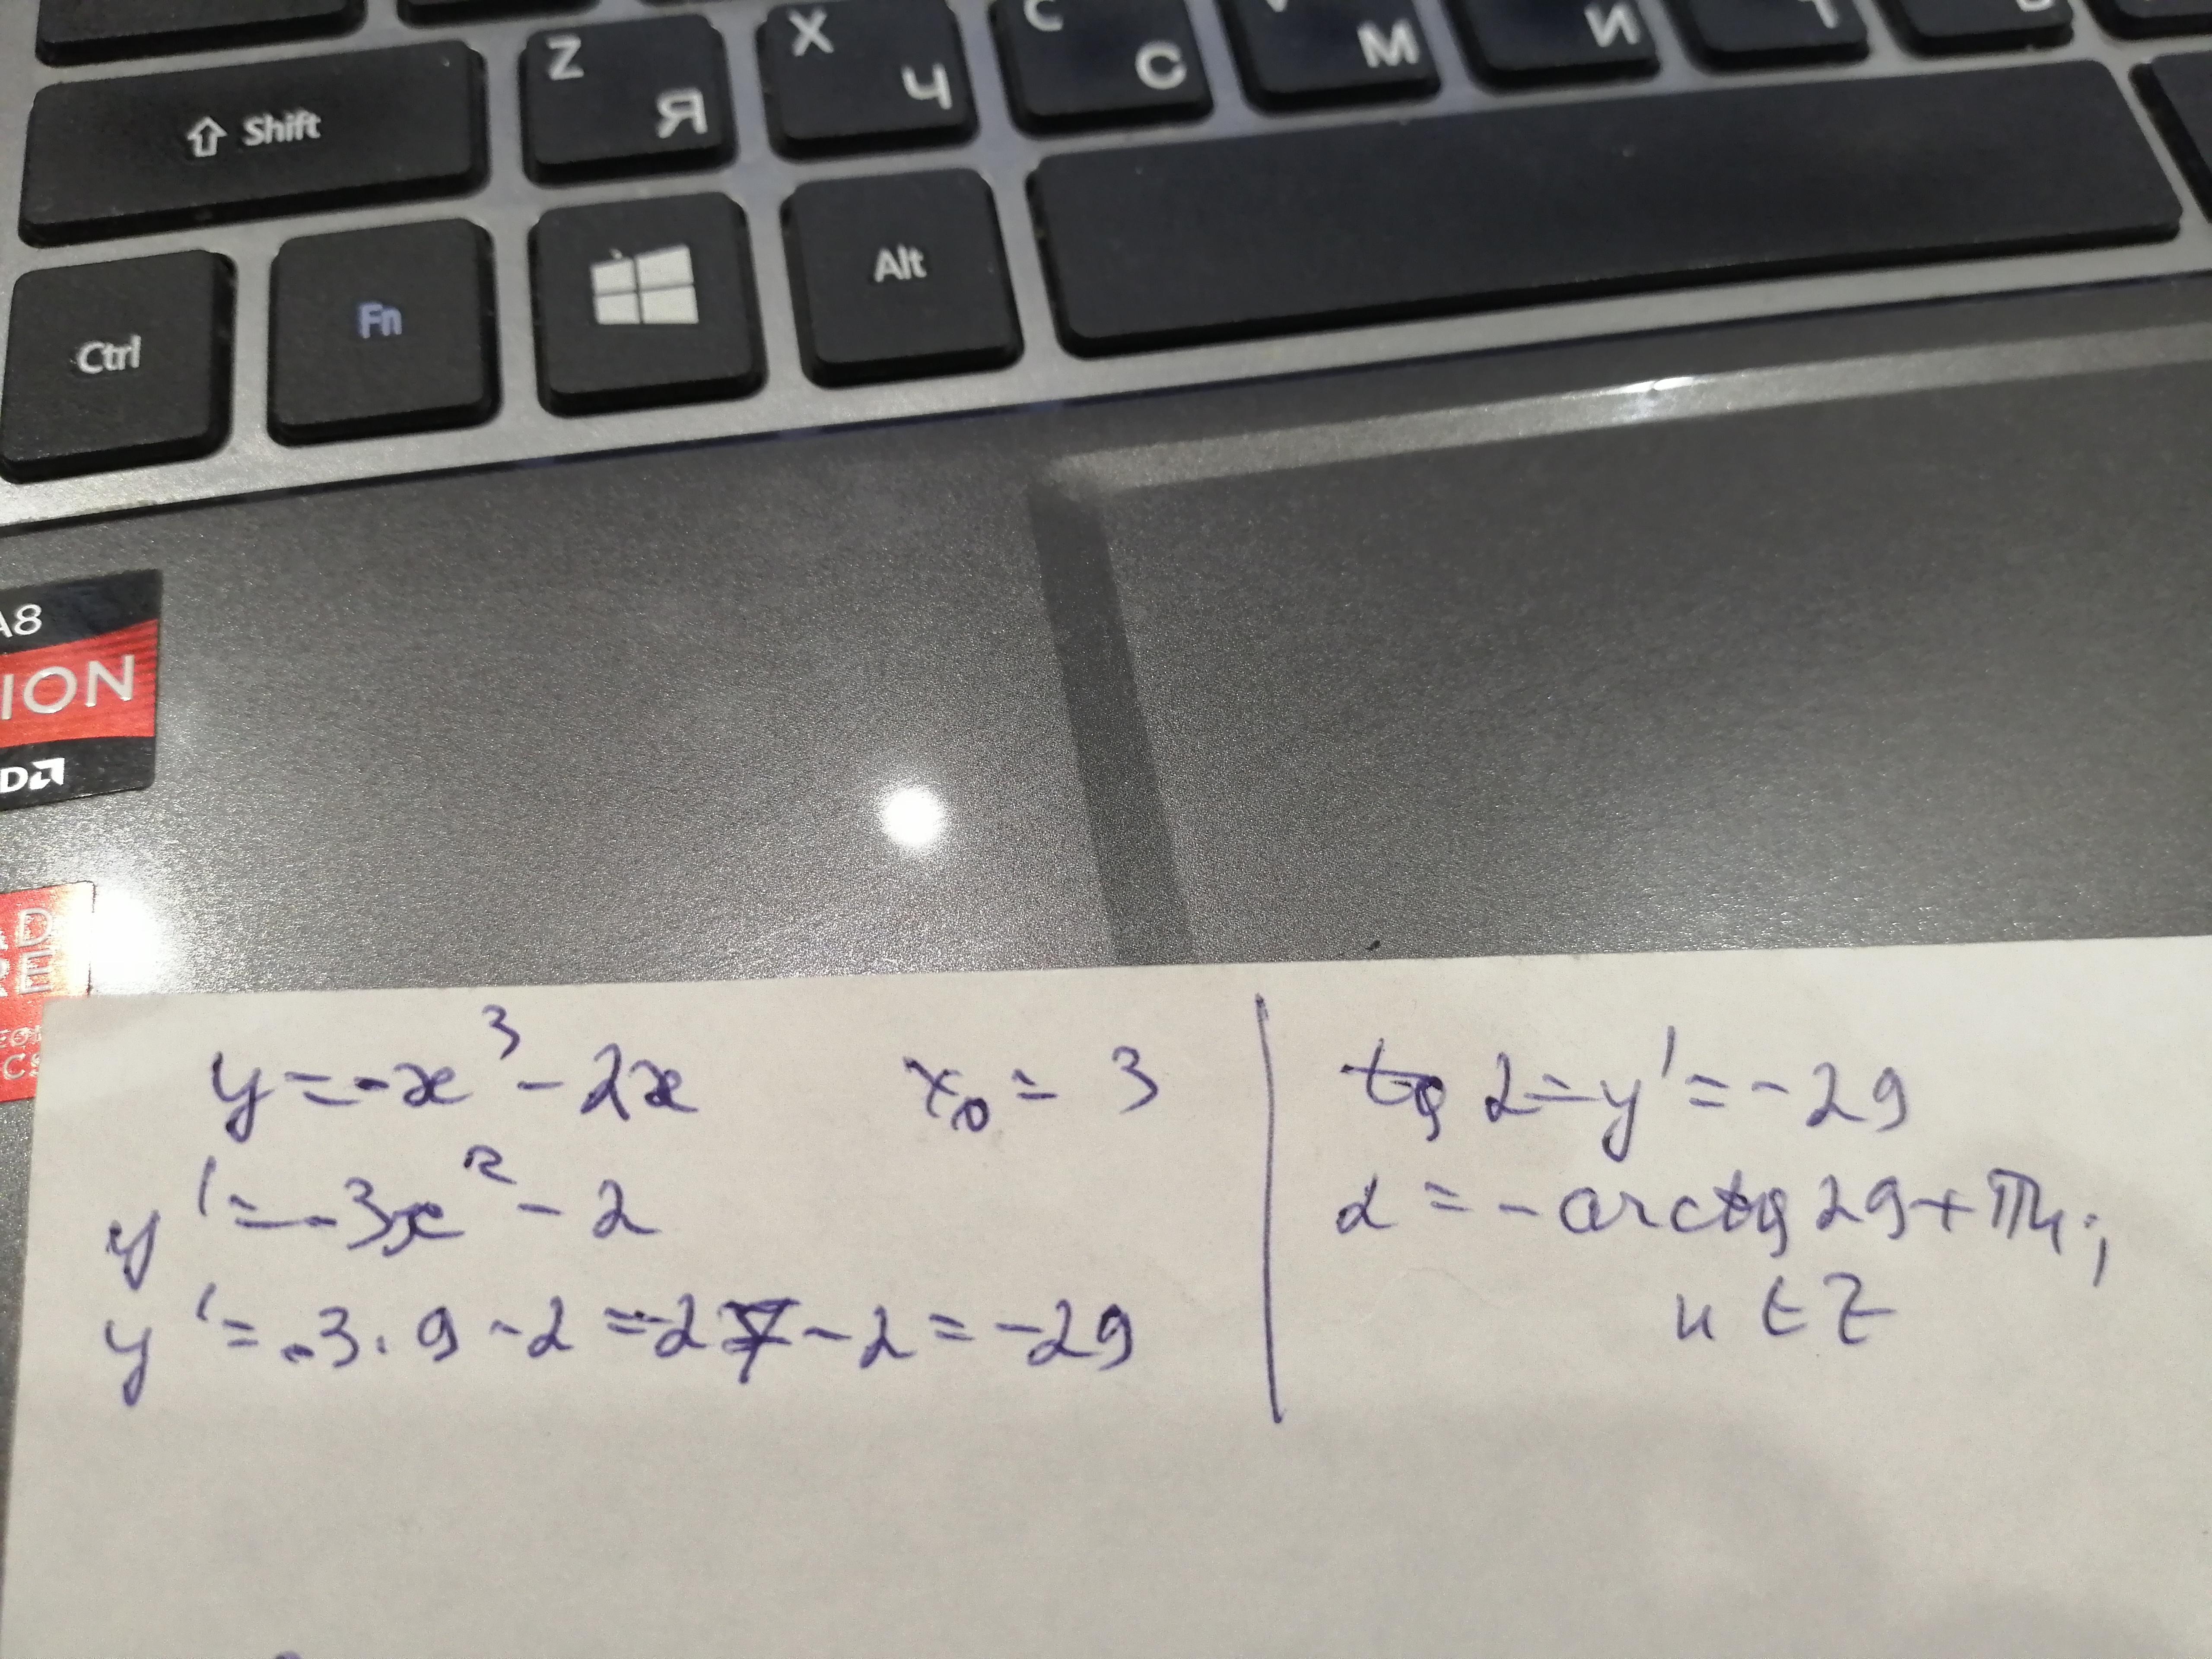 Z
Я
X
Ч
C
С
М
И
Shift
Ctrl
Fn
Alt
A8
ION
D
&D
RE
y = -x³ - 2x
x₀ = 3
y' = -3x² - 2
y' = -3 · 9 - 2 = -27 - 2 = -29
tg α = y' = -29
α = - arctg 29 + πn;
n ∈ Z